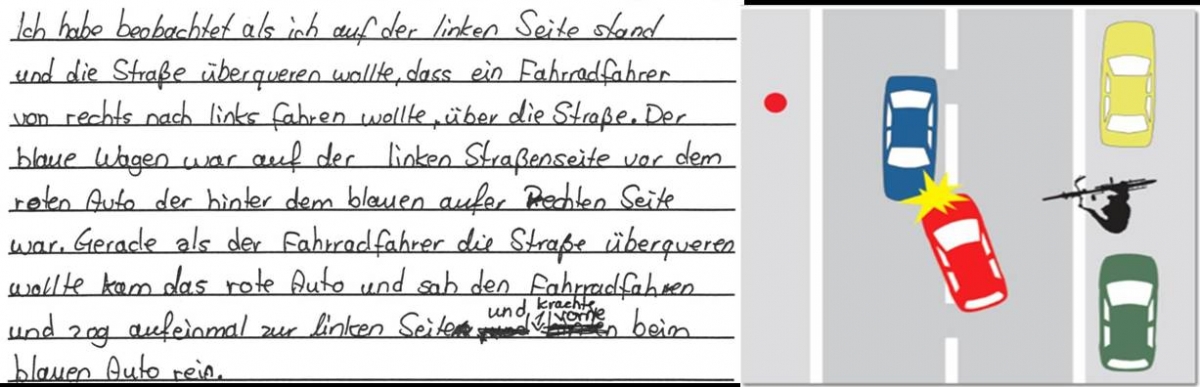 Ich habe beobachtet als ich auf der linken Seite stand
und die Straße überqueren wollte, dass ein Fahrradfahrer
von rechts nach links fahren wollte, über die Straße. Der
blaue Wagen war auf der linken Straßenseite vor dem
roten Auto der hinter dem blauen aufer Rechten Seite
war. Gerade als der Fahrradfahrer die Straße überqueren
wollte kam das rote Auto und sah den Fahrradfahren
und zog aufeinmal zur linken Seite und krachte vorne beim
blauen Auto rein.